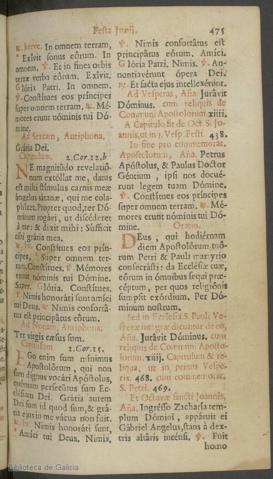 Festa Junij. 475
℟. breve. In omnem terram,
* Exivit sonus eórum. In
omnem. ℣. Et in fines orbis
terræ verba eórum. Exivit.
Glória Patri. In omnem.
℣. Constítues eos príncipes
super omnem terram. ℟. Mé-
mores erunt nóminis tui Dó-
mine.
Ad Sextam, Antiphona.
Grátia Dei.
Capitulum. 2. Cor. 12. b
NE magnitúdo revelatió-
num extóllat me, datus
est mihi stímulus carnis meæ
ángelus sátanæ, qui me cola-
phízet. Propter quod, ter Dó-
minum rogávi, ut discéderet
à me: & dixit mihi: Súfficit
tibi grátia mea.
Constítues eos prín-
cipes, * Super omnem ter-
ram. Constítues. ℣. Mémores
erunt nóminis tui Dómine.
Super. Glória. Constítues.
℣. Nimis honoráti sunt amíci
tui Deus. ℟. Nimis conforta-
tus est principátus eórum.
Ad Nonam, Antiphona.
Ter virgis cæsus sum.
Capitulum. 1. Cor. 15.
EGo enim sum mínimus
Apostolórum, qui non
sum dignus vocári Apóstolus,
quóniam persecútus sum Ec-
clésiam Dei. Grátia autem
Dei sum id quod sum, & grá-
tia ejus in me vácua non fuit.
℟. br. Nimis honoráti sunt,
* Amíci tui Deus. Nimis.
℣. Nimis confortátus est
principátus eórum. Amíci.
Glória Patri. Nimis. ℣. An-
nuntiavérunt ópera Dei.
℟. Et facta ejus intellexérunt.
Ad Vesperas, Aña. Jurávit
Dóminus. cum reliquis de
Communi Apostolorum. xiiij.
A Capitulo fit de Oct. S. Jo-
annis, ut in 1. Vesp. Festi. 438.
In fine pro commemorat.
Apostolorum, Aña. Petrus
Apóstolus, & Paulus Doctor
Géntium, ipsi nos docué-
runt legem tuam Dómine.
℣. Constítues eos príncipes
super omnem terram. ℟. Mé-
mores erunt nóminis tui Dó-
mine.
Oratio.
DEus, qui hodiérnam
diem Apostolórum tuó-
rum Petri & Pauli martyrio
consecrásti: da Ecclésiæ tuæ,
eórum in ómnibus sequi præ-
céptum, per quos religiónis
sumpsit exórdium. Per Dó-
minum nostrum.
Sed in Ecclesia S. Pauli Ve-
speræ integræ dicuntur de eo,
Aña. Jurávit Dóminus, cum
reliquis de Communi Aposto-
lorum. xiij. Capitulum & re-
liqua, ut in primis Vespe-
ris. 468. cum commemorat.
S. Petri. 469.
Et Octavæ sancti Joannis,
Aña. Ingrésso Zacharía tem-
plum Dómini, appáruit ei
Gábriel Angelus, stans à dex-
tris altáris incénsi. ℣. Fuit
homo
Biblioteca de Galicia